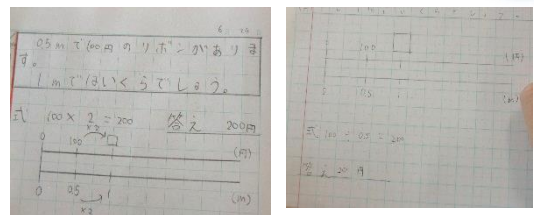 6 14
0.5mで100円のリボンがありま
す。
1mではいくらでしょう。
式 100×2=200 答え 200円
×2
0 100 □ (円)
0 0.5 1 (m)
×2
□
0 100 (円)
0 0.5 1 (m)
式 100÷0.5=200
答え 200円